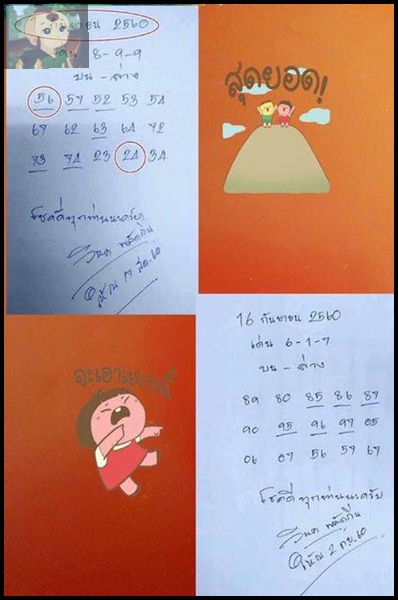 กันยายน 2560
เด่น 8-9-9
บน - ล่าง
56 57 52 53 54
67 62 63 64 72
73 74 23 24 34
โชคดีทุกท่านนะครับ
สุดยอด!
จะเอาแบบนี้
16 กันยายน 2560
เด่น 6-1-7
บน - ล่าง
89 80 85 86 87
90 95 96 97 05
06 07 56 57 67
โชคดีทุกท่านนะครับ
ให้ณ 2 กย.60